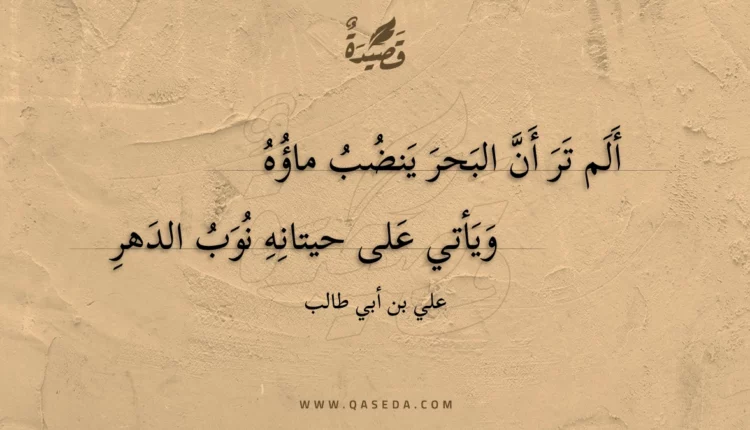 قَصِيدَةٌ
أَلَم تَرَ أَنَّ البَحرَ يَنضُبُ ماؤُهُ
وَيَأتي عَلى حيتانِهِ نُوَبُ الدَهرِ
علي بن أبي طالب
WWW.QASEDA.COM